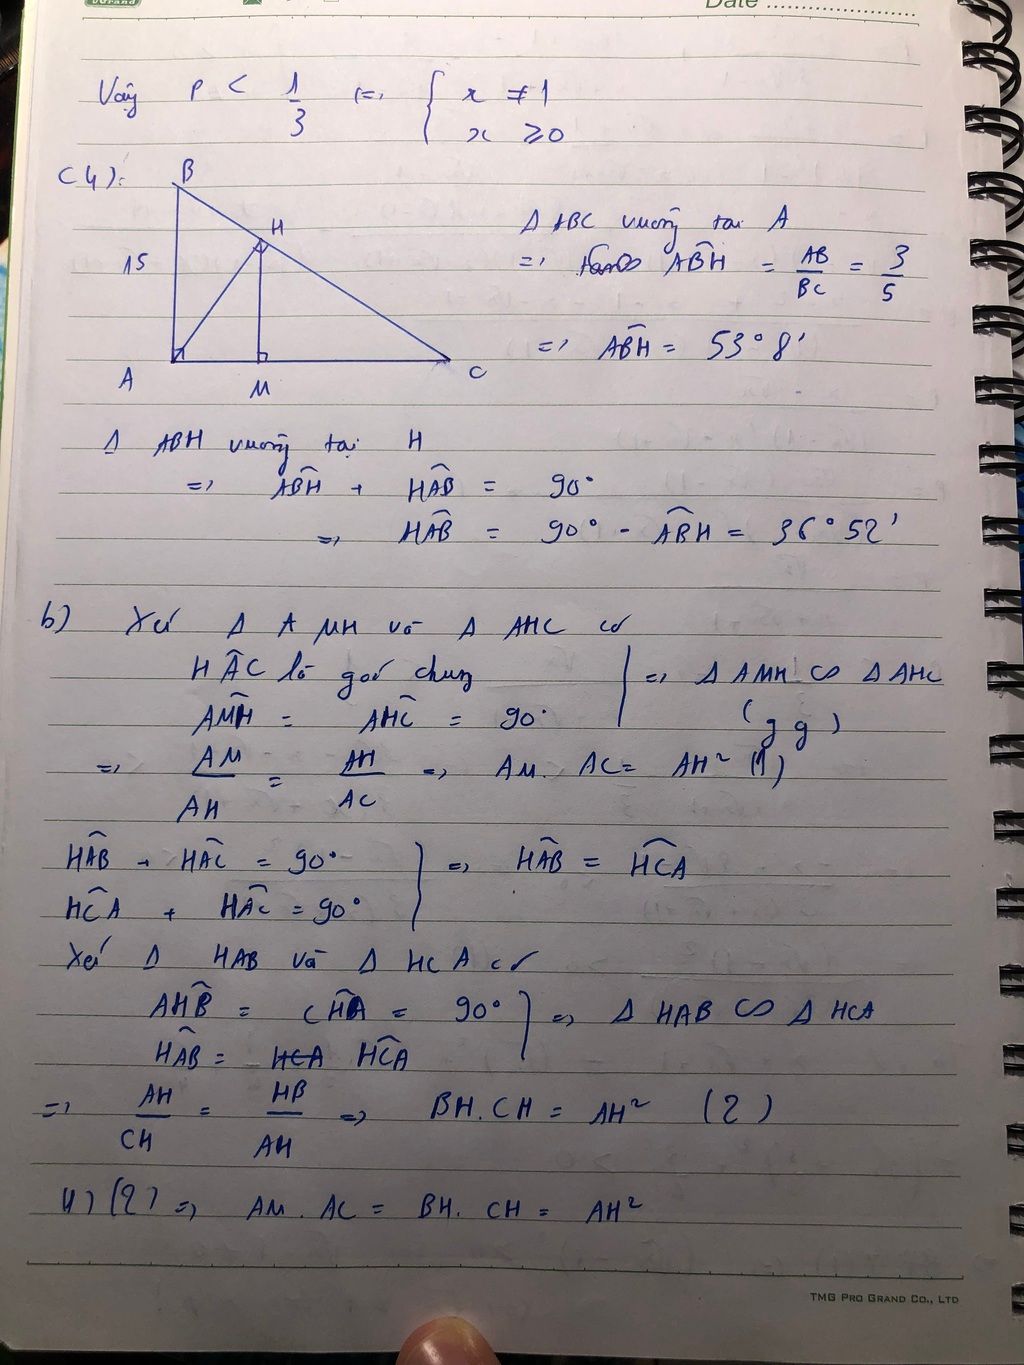 Grand
Date
Vậy P < 1/3 <=> { x ≠ 1
x ≥ 0
C4):
B
H
15
A
M
C
Δ ABC vuông tại A
=> cos ABH = AB/BC = 3/5
=> ABH = 53°8'
Δ ABH vuông tại H
=> ABH + HAB = 90°
=> HAB = 90° - ABH = 36°52'
b) Xét Δ AMH và Δ AHC có
HAC là góc chung
AMH = AHC = 90°
=> Δ AMH ∽ Δ AHC
(gg)
=> AM/AH = AH/AC => AM. AC = AH² (1)
HAB + HAC = 90°
HCA + HAC = 90°
=> HAB = HCA
Xét Δ HAB và Δ HCA có
AHB = CHA = 90°
HAB = HCA HCA
=> Δ HAB ∽ Δ HCA
=> AH/CH = HB/AH => BH.CH = AH² (2)
1) (2) => AM. AC = BH. CH = AH²
TMG PRO GRAND CO., LTD